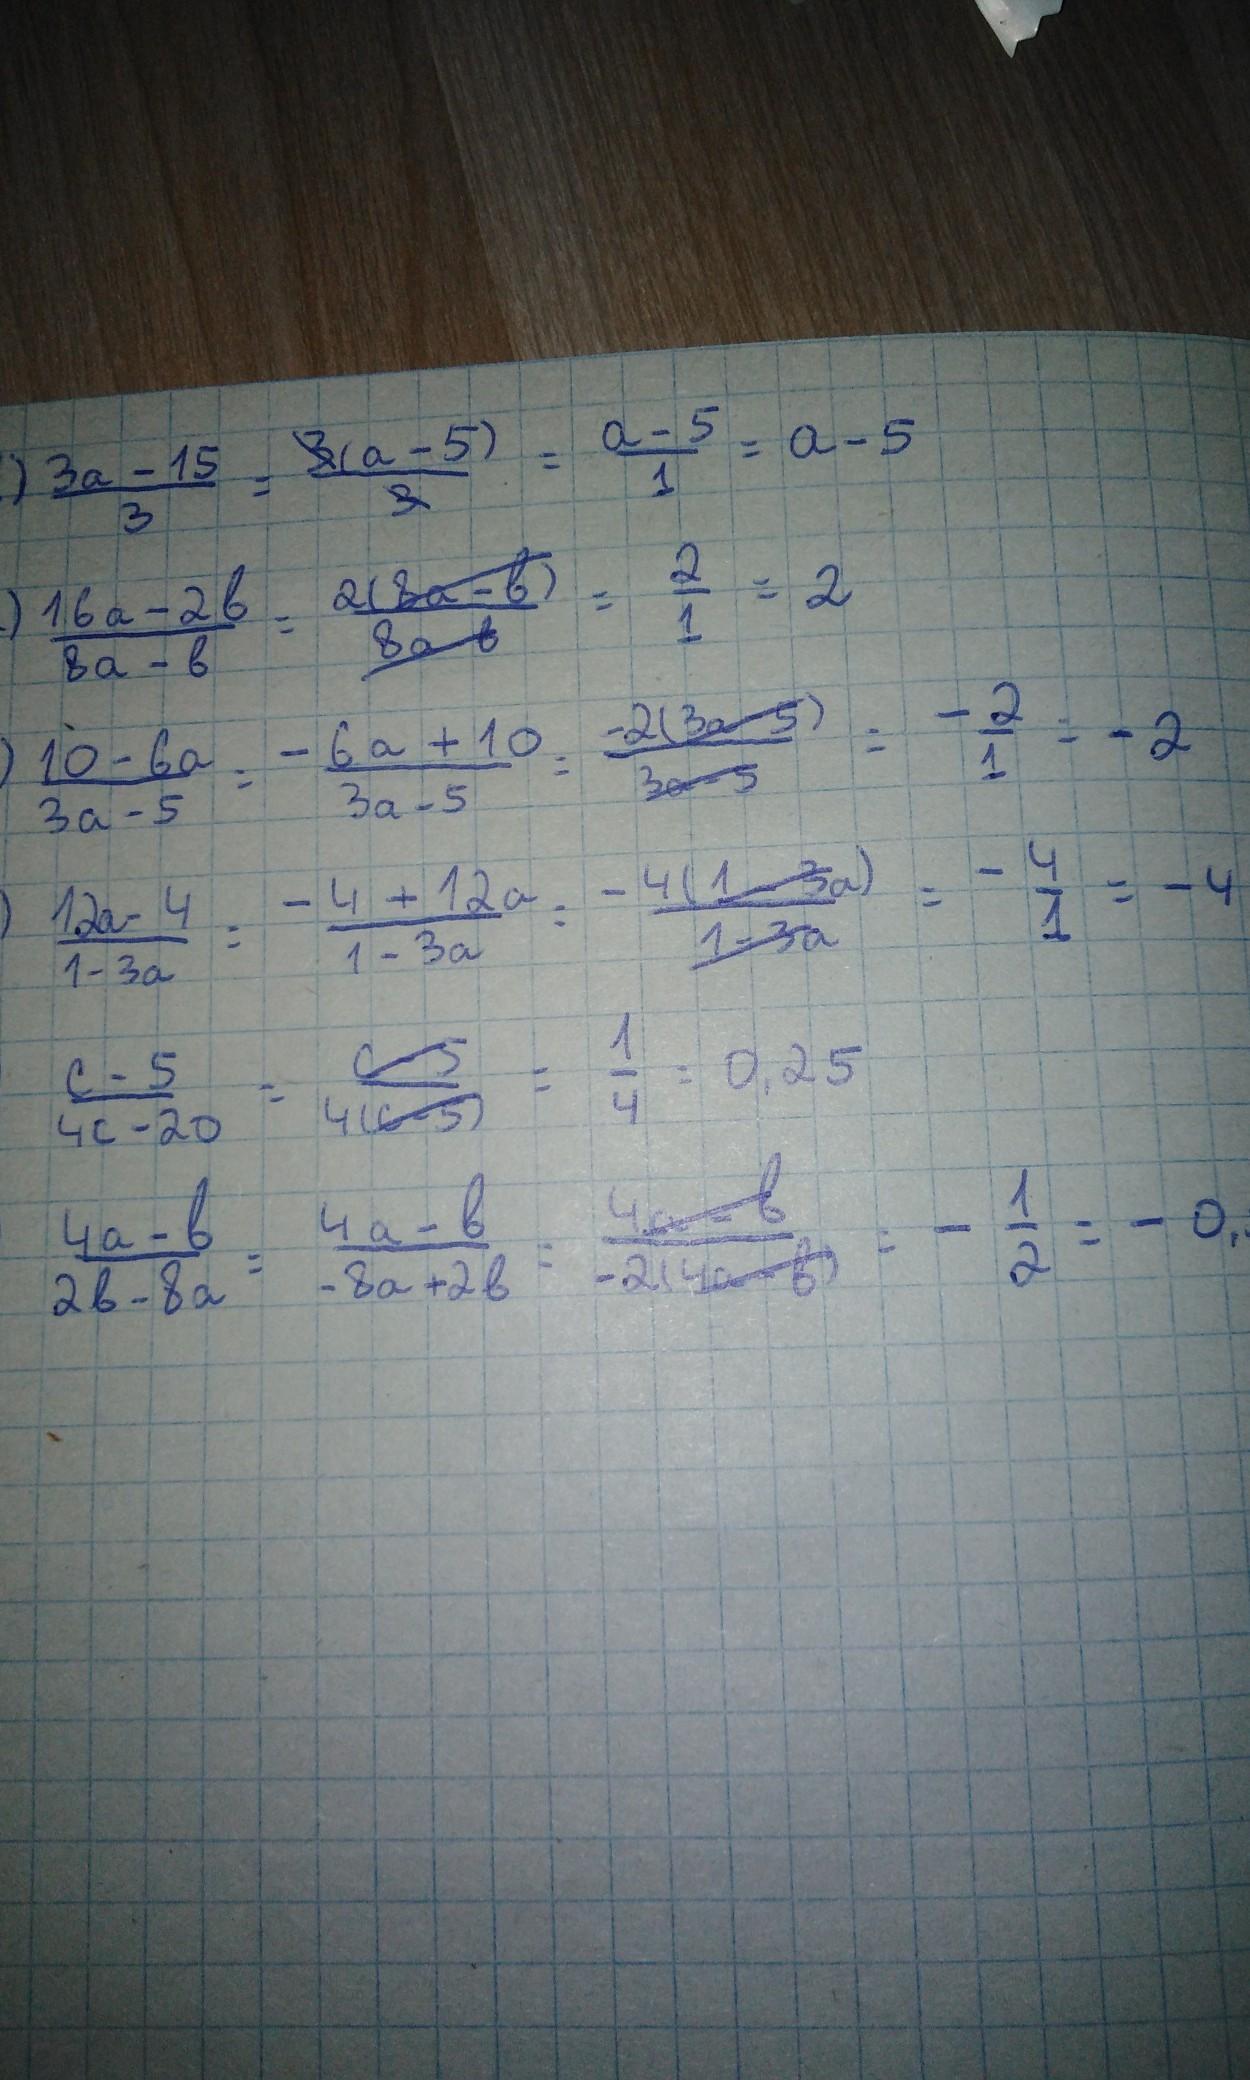 ) (3a - 15)/3 = 3(a - 5)/3 = (a - 5)/1 = a - 5
) (16a - 2b)/(8a - b) = 2(8a - b)/(8a - b) = 2/1 = 2
) (10 - 6a)/(3a - 5) = (-6a + 10)/(3a - 5) = -2(3a - 5)/(3a - 5) = -2/1 = -2
) (12a - 4)/(1 - 3a) = (-4 + 12a)/(1 - 3a) = -4(1 - 3a)/(1 - 3a) = -4/1 = -4
(c - 5)/(4c - 20) = (c - 5)/4(c - 5) = 1/4 = 0,25
(4a - b)/(2b - 8a) = (4a - b)/(-8a + 2b) = (4a - b)/-2(4a - b) = -1/2 = -0,